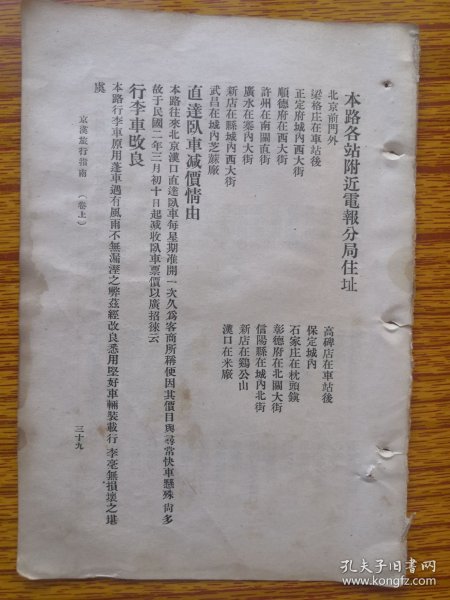 本路各站附近電報分局住址
北京前門外
梁格庄在車站後
正定府城內西大街
順德府在西大街
許州在南關直街
廣水在寨內大街
新店在縣城內西大街
武昌在城內芝蔴廠
高碑店在車站後
保定城內
石家庄在枕頭鎮
彰德府在北關大街
信陽縣在城內北街
新店在鷄公山
漢口在米廠
直達臥車減價情由
本路往來北京漢口直達臥車每星期准開一次久爲客商所稱便因其價目與尋常快車懸殊尙多
故于民國二年三月初十日起減收臥車票價以廣招徠云
行李車改良
本路行李車原用蓬車遇有風雨不無漏溼之弊茲經改良悉用堅好車輛裝載行李毫無損壞之堪
虞
京漢旅行指南 （卷上）
三十九
孔夫子旧书网
www.kongfz.com